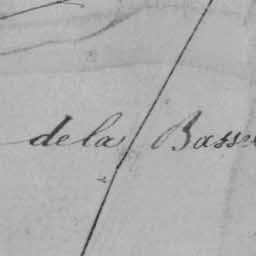 de la Basse